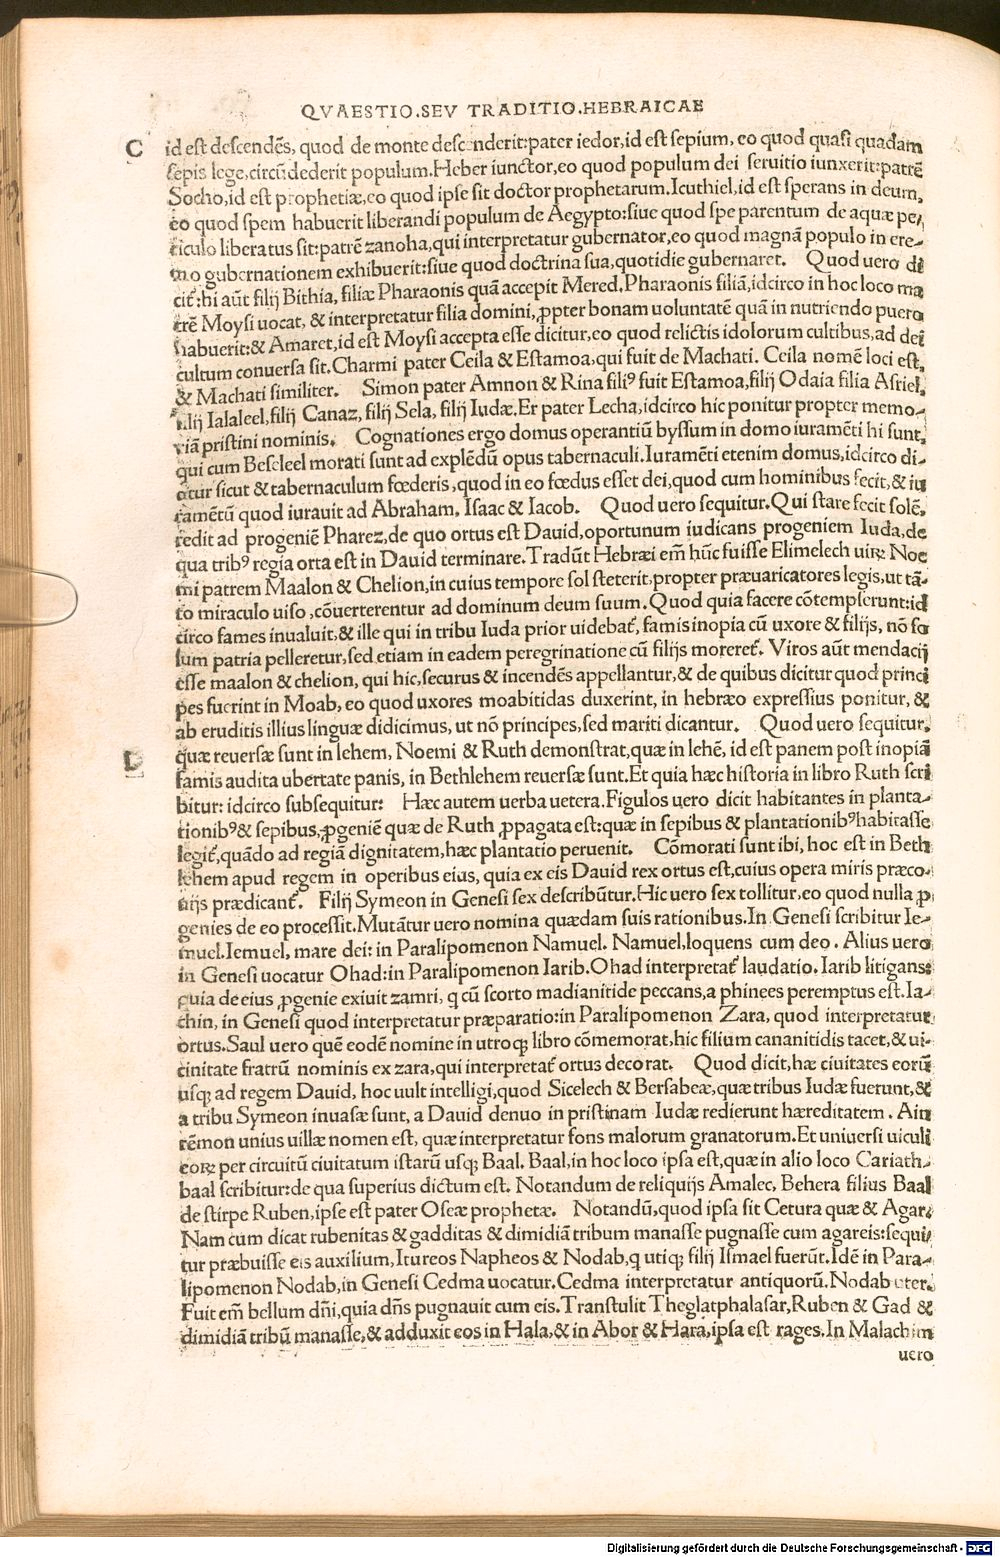 QVAESTIO.SEV TRADITIO.HEBRAICAE
C
id est descendēs, quod de monte descenderit:pater iedor,id est sepium, eo quod quasi quadam
sepis lege,circūdederit populum.Heber iunctor,eo quod populum dei seruitio iunxerit:patrē
Socho,id est prophetiæ,eo quod ipse sit doctor prophetarum.Icuthiel,id est sperans in deum,
eo quod spem habuerit liberandi populum de Aegypto:siue quod spe parentum de aquæ pe/
riculo liberatus sit:patrē zanoha,qui interpretatur gubernator,eo quod magnā populo in ere-
mo gubernationem exhibuerit:siue quod doctrina sua,quotidie gubernaret. Quod uero di
cit̃:hi aūt filij Bithia, filiæ Pharaonis quā accepit Mered,Pharaonis filiā,idcirco in hoc loco ma
trē Moysi uocat, & interpretatur filia domini,ꝓpter bonam uoluntatē quā in nutriendo puero
habuerit:& Amaret,id est Moysi accepta esse dicitur,eo quod relictis idolorum cultibus,ad dei
cultum conuersa sit.Charmi pater Ceila & Estamoa,qui fuit de Machati. Ceila nomē loci est,
& Machati similiter. Simon pater Amnon & Rina filiꝰ fuit Estamoa,filij Odaia filia Asriel,
filij Ialaleel,filij Canaz, filij Sela, filij Iudæ.Er pater Lecha,idcirco hic ponitur propter memo-
riā pristini nominis. Cognationes ergo domus operantiū byssum in domo iuramēti hi sunt,
qui cum Beseleel morati sunt ad explēdū opus tabernaculi.Iuramēti etenim domus,idcirco di-
citur sicut & tabernaculum fœderis,quod in eo fœdus esset dei,quod cum hominibus fecit,& iu
ramētū quod iurauit ad Abraham, Isaac & Iacob. Quod uero sequitur.Qui stare fecit solē,
redit ad progeniē Pharez,de quo ortus est Dauid,oportunum iudicans progeniem Iuda,de
qua tribꝰ regia orta est in Dauid terminare.Tradūt Hebræi em̄ hūc fuisse Elimelech uirꝝ Noe
mi patrem Maalon & Chelion,in cuius tempore sol steterit,propter præuaricatores legis,ut tā-
to miraculo uiso ,cōuerterentur ad dominum deum suum.Quod quia facere cōtempserunt:id
circo fames inualuit,& ille qui in tribu Iuda prior uidebat̃, famis inopia cū uxore & filijs, nō so
lum patria pelleretur,sed etiam in eadem peregrinatione cū filijs moreret̃. Viros aūt mendacij
esse maalon & chelion, qui hic,securus & incendēs appellantur,& de quibus dicitur quod princi
pes fuerint in Moab, eo quod uxores moabitidas duxerint, in hebræo expressius ponitur, &
ab eruditis illius linguæ didicimus, ut nō principes,sed mariti dicantur. Quod uero sequitur,
D
quæ reuersæ sunt in lehem, Noemi & Ruth demonstrat,quæ in lehē, id est panem post inopiā
famis audita ubertate panis, in Bethlehem reuersæ sunt.Et quia hæc historia in libro Ruth scri
bitur: idcirco subsequitur: Hæc autem uerba uetera.Figulos uero dicit habitantes in planta-
tionibꝰ& sepibus,ꝓgeniē quæ de Ruth ꝓpagata est:quæ in sepibus & plantationibꝰhabitasse
legit̃,quādo ad regiā dignitatem,hæc plantatio peruenit. Cōmorati sunt ibi, hoc est in Beth
lehem apud regem in operibus eius, quia ex eis Dauid rex ortus est,cuius opera miris præco-
nijs prædicant̃. Filij Symeon in Genesi sex describūtur.Hic uero sex tollitur,eo quod nulla ꝓ
genies de eo processit.Mutātur uero nomina quædam suis rationibus.In Genesi scribitur Ie-
muel.Iemuel, mare dei: in Paralipomenon Namuel. Namuel,loquens cum deo. Alius uero
in Genesi uocatur Ohad:in Paralipomenon Iarib.Ohad interpretat̃ laudatio.Iarib litigans:
quia de eius ꝓgenie exiuit zamri, q cū scorto madianitide peccans,a phinees peremptus est.Ia-
chin, in Genesi quod interpretatur præparatio:in Paralipomenon Zara, quod interpretatur
ortus.Saul uero quē eodē nomine in utroqꝫ libro cōmemorat,hic filium cananitidis tacet,& ui-
cinitate fratrū nominis ex zara,qui interpretat̃ ortus decorat. Quod dicit,hæ ciuitates eorū
usqꝫ ad regem Dauid, hoc uult intelligi,quod Sicelech & Bersabeæ,quæ tribus Iudæ fuerunt,&
a tribu Symeon inuasæ sunt, a Dauid denuo in pristinam Iudæ redierunt hæreditatem. Ain
rēmon unius uillæ nomen est, quæ interpretatur fons malorum granatorum.Et uniuersi uiculi
eorꝝ per circuitū ciuitatum istarū usqꝫ Baal. Baal,in hoc loco ipsa est,quæ in alio loco Cariath-
baal scribitur:de qua superius dictum est. Notandum de reliquijs Amalec, Behera filius Baal
de stirpe Ruben,ipse est pater Oseæ prophetæ. Notandū,quod ipsa sit Cetura quæ & Agar.
Nam cum dicat rubenitas & gadditas & dimidiā tribum manasse pugnasse cum agareis:sequi/
tur præbuisse eis auxilium,Itureos Napheos & Nodab,q utiqꝫ filij Ismael fuerūt.Idē in Para-
lipomenon Nodab,in Genesi Cedma uocatur.Cedma interpretatur antiquorū.Nodab uter.
Fuit em̄ bellum dn̄i,quia dn̄s pugnauit cum eis.Transtulit Theglatphalasar,Ruben & Gad &
dimidiā tribū manasse,& adduxit eos in Hala,& in Abor & Hara,ipsa est rages.In Malachim
uero
Digitalisierung gefördert durch die Deutsche Forschungsgemeinschaft - DFG